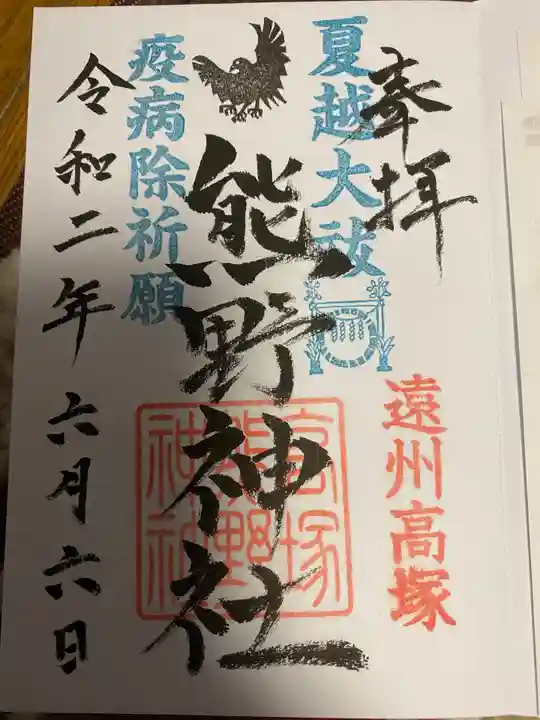 奉拝
夏越大祓
遠州高塚
熊野神社
高塚
熊野
神社
疫病除祈願
令和二年六月六日